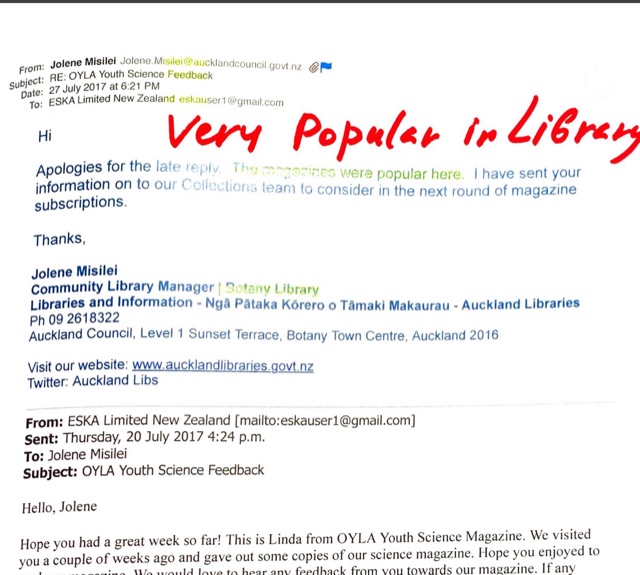 From: Jolene Misilei Jolene.Misilei@aucklandcouncil.govt.nz
Subject: RE: OYLA Youth Science Feedback
Date: 27 July 2017 at 6:21 PM
To: ESKA Limited New Zealand eskauser1@gmail.com
Very Popular in Library
Hi
Apologies for the late reply. The magazines were popular here. I have sent your
information on to our Collections team to consider in the next round of magazine
subscriptions.
Thanks,
Jolene Misilei
Community Library Manager | Botany Library
Libraries and Information - Ngā Pātaka Kōrero o Tāmaki Makaurau - Auckland Libraries
Ph 09 2618322
Auckland Council, Level 1 Sunset Terrace, Botany Town Centre, Auckland 2016
Visit our website: www.aucklandlibraries.govt.nz
Twitter: Auckland Libs
From: ESKA Limited New Zealand [mailto:eskauser1@gmail.com]
Sent: Thursday, 20 July 2017 4:24 p.m.
To: Jolene Misilei
Subject: OYLA Youth Science Feedback
Hello, Jolene
Hope you had a great week so far! This is Linda from OYLA Youth Science Magazine. We visited
you a couple of weeks ago and gave out some copies of our science magazine. Hope you enjoyed to
We would love to hear any feedback from you towards our magazine. If any